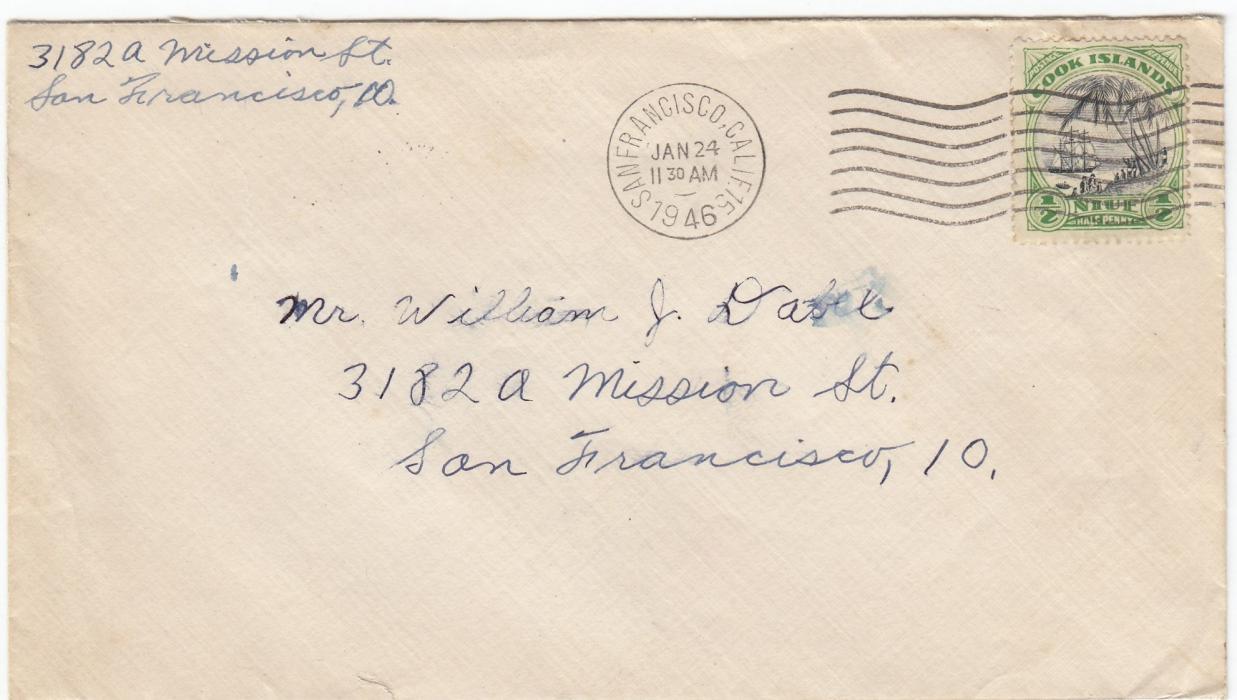 3182A Mission St.
San Francisco, 10.
SAN FRANCISCO, CALIF. 15
JAN 24
11 30 AM
1946
COOK ISLANDS
NIUE
1/2 1/2
HALF PENNY
Mr. William J.
3182A Mission St.
San Francisco, 10.